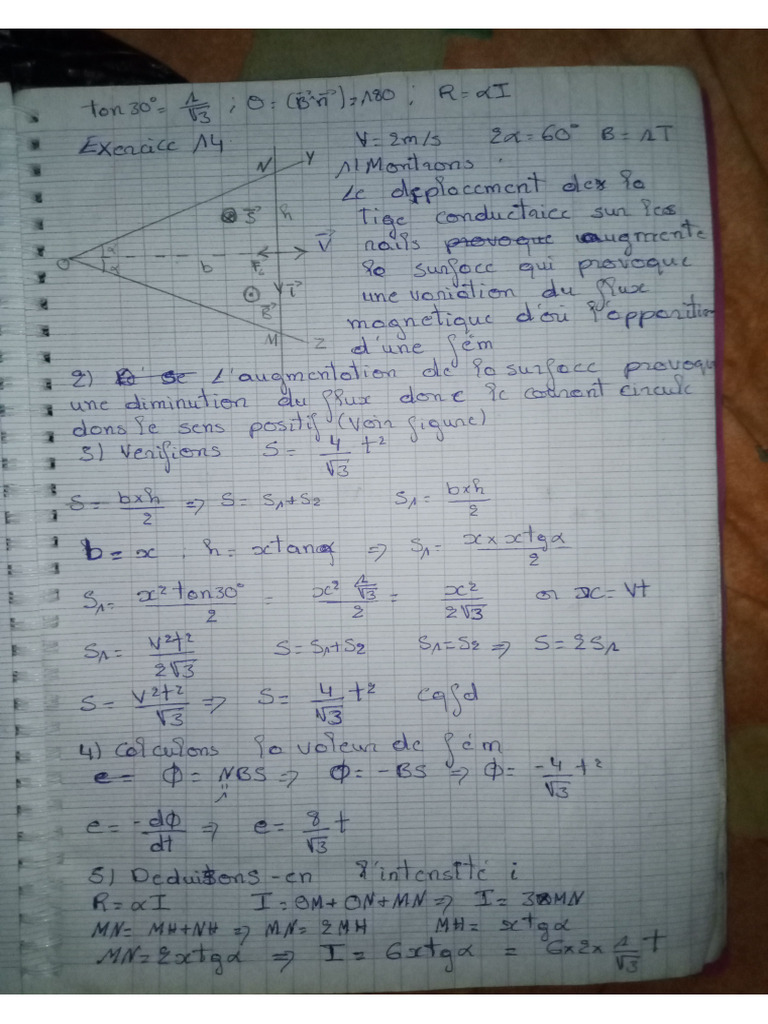 tan30° = 1/√3 ; θ = (B⃗,n⃗) = 180 ; R = αI
Exercice 14
V = 2m/s 2α = 60° B = 1T
1/ Montrons :
Le deplacement des la
tige conductrice sur les
rails provoque augmente
la surface qui provoque
une variation du flux
magnetique d'où l'apparition
d'une fém
N Y
S⃗ h
O α α b F⃗ V⃗
B⃗ i⃗
M Z
2) L'augmentation de la surface provoque
une diminution du flux donc le courant circule
dans le sens positif (Voir figure)
3) Verifions S = 4/√3 t²
S = b×h/2 ⇒ S = S1+S2 S1 = b×h/2
b = x , h = xtanα ⇒ S1 = x × xtgα/2
S1 = x² tan30°/2 = x² 1/√3/2 = x²/2√3 or x = Vt
S1 = V²t²/2√3 S = S1+S2 S1 = S2 ⇒ S = 2S1
S = V²t²/√3 ⇒ S = 4/√3 t² cqfd
4) Calculons la valeur de fém
e = Φ = NBS ⇒ Φ = -BS ⇒ Φ = -4/√3 t²
e = -dΦ/dt ⇒ e = 8/√3 t
5) Deduisons-en l'intensité i
R = αI I = OM + ON + MN ⇒ I = 3MN
MN = MH + NH ⇒ MN = 2MH MH = xtgα
MN = 2xtgα ⇒ I = 6xtgα = 6×2× 1/√3 t